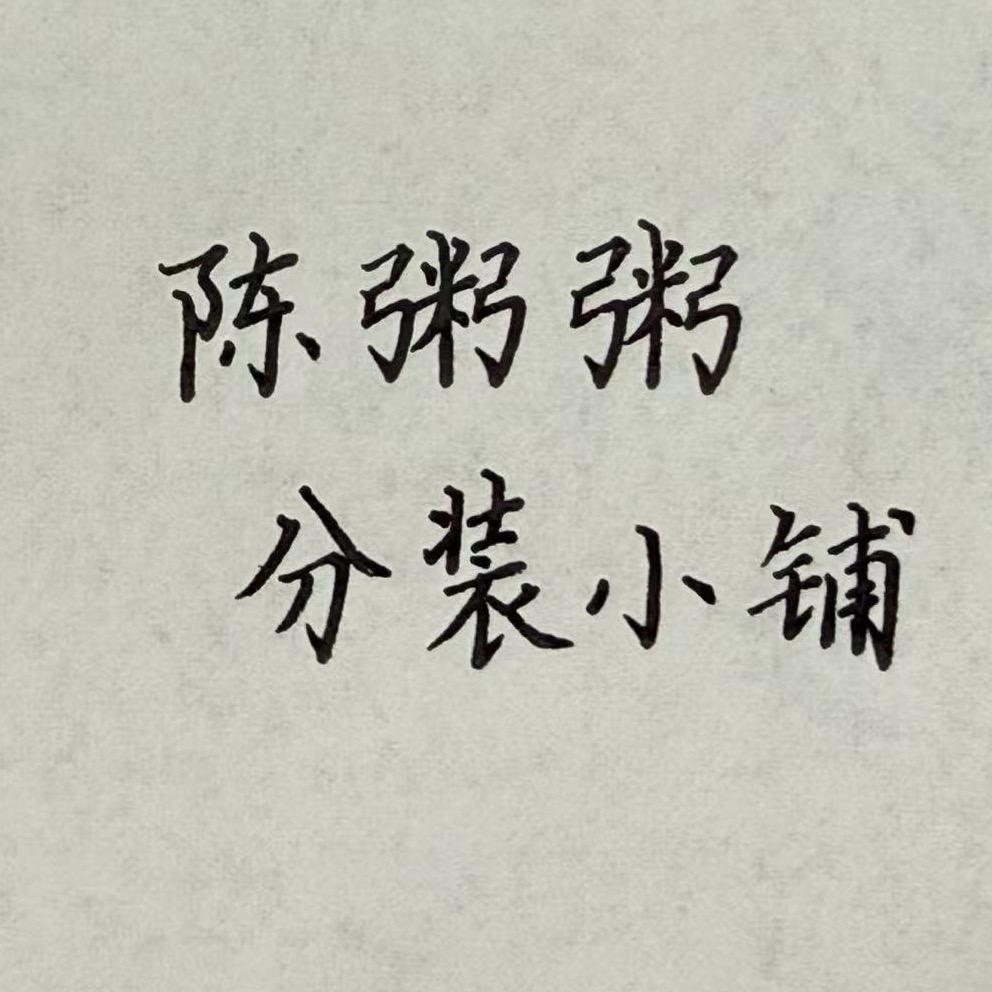 陈粥粥
分装小铺